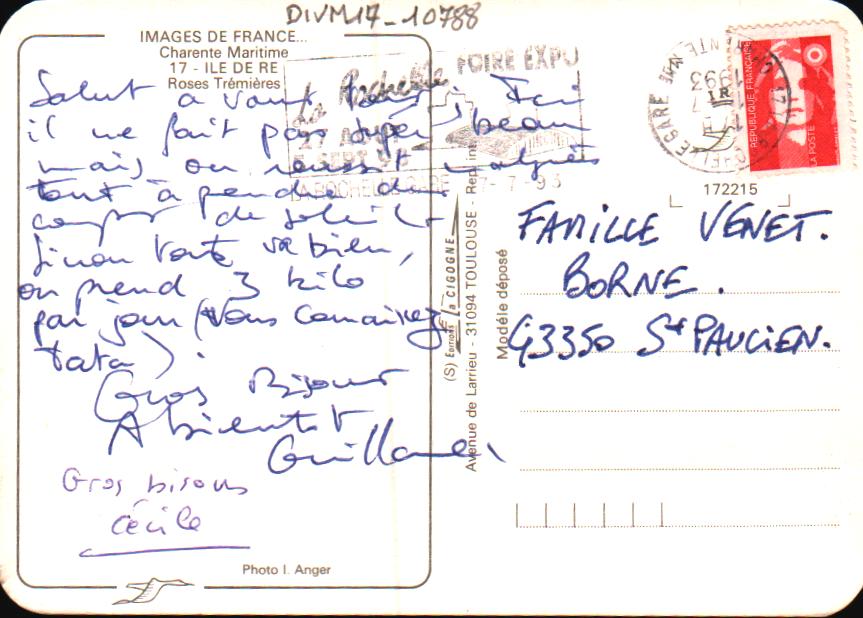 DIVM17-10788
IMAGES DE FRANCE...
Charente Maritime
17 - ILE DE RE
Roses Trémières
Salut a vous tous! Ici
il ne fait pas super beau
mais on reussit malgrés
tout à prendre des
coups de soleil
Sinon toute va bien,
on prend 3 kilo
par jour (vous connaissez
tata).
Gros Bisous
A bientot
Guillaume
Gros bisous
Cécile
Photo I. Anger
(S) Editions la CIGOGNE
Avenue de Larrieu - 31094 TOULOUSE - Rep. int.
Modèle déposé
La Rochelle
FOIRE EXPO
LA ROCHELLE GARE
7-7-93
LA ROCHELLE GARE
1993
REPUBLIQUE FRANÇAISE
LA POSTE
172215
FAMILLE VENET.
BORNE.
43350 St PAUCIEN.